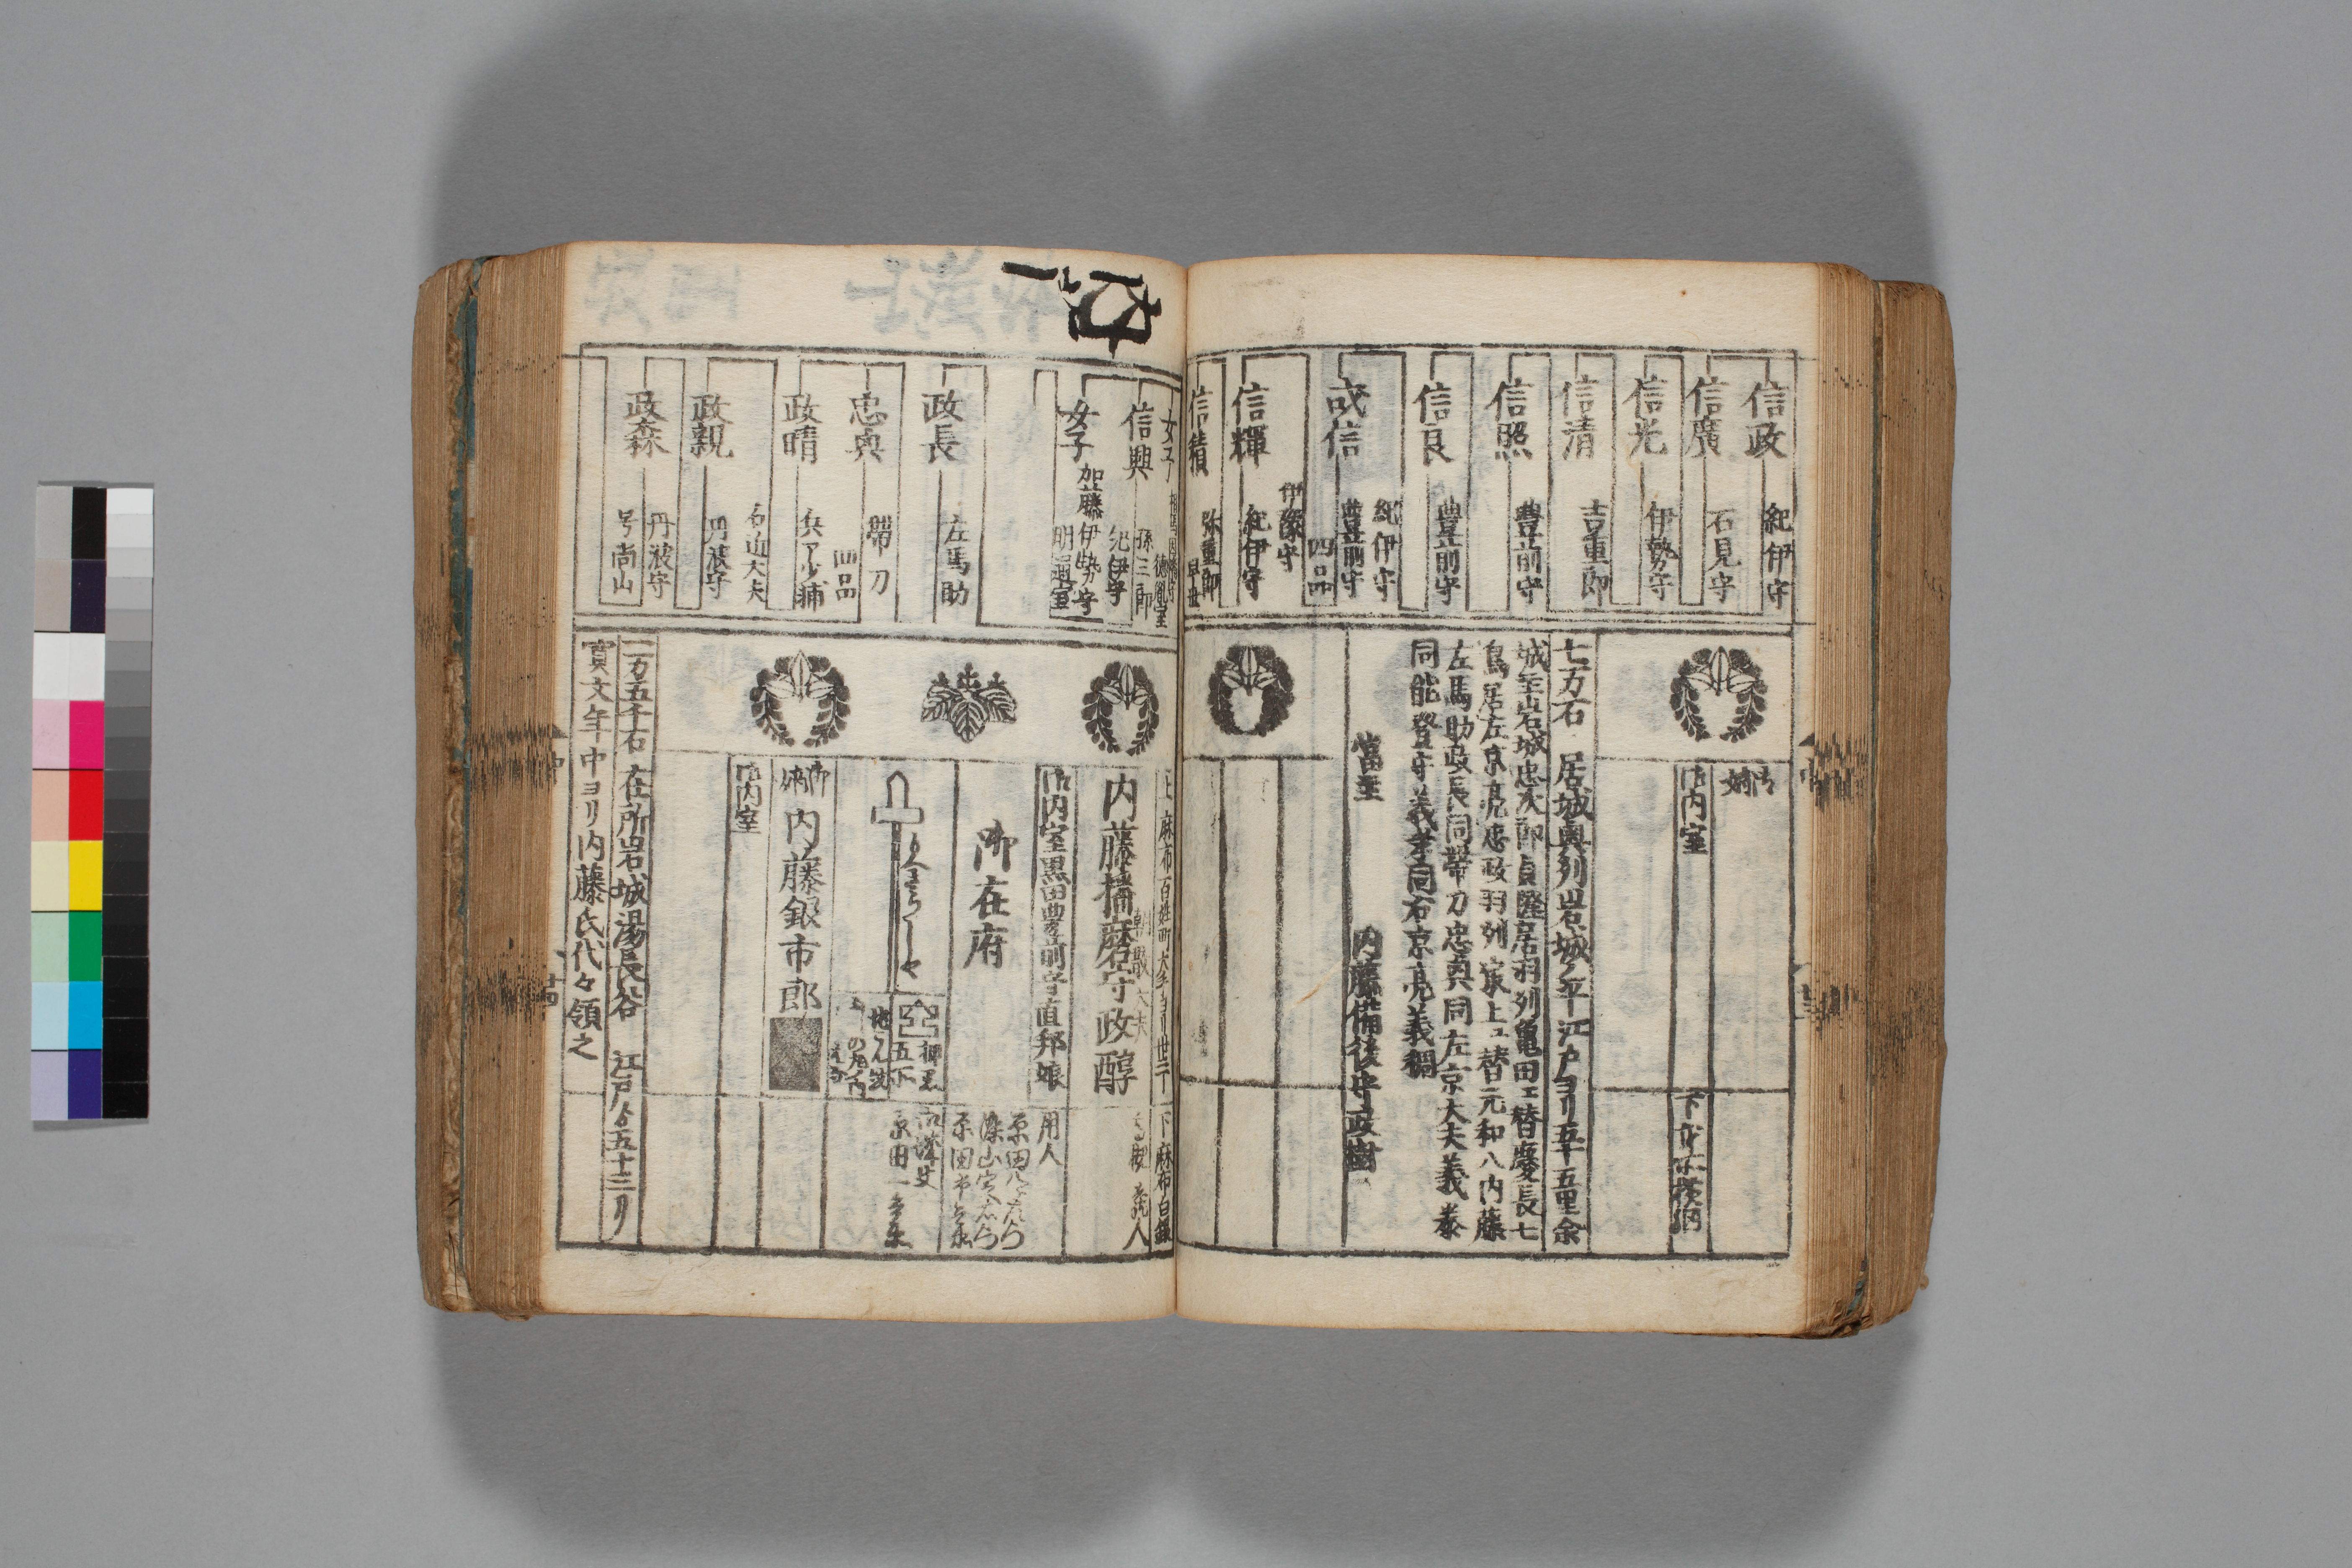 信政 紀伊守
信廣 石見守
信光 伊勢守
信清 吉重郎
信照 豊前守
信良 豊前守
紀伊守
成信 豊前守
四品
伊豫守
信輝 紀伊守
信積 弥重郎 早世
御嫡
御内室
下
七万石 居城奥列岩城ノ平 江戸ヨリ五十五里余
城主岩城忠次郎貞隆居羽列亀田エ替慶長七
鳥居左京亮忠政羽列最上エ替元和八内藤
左馬助政長同帯刀忠興同左京大夫義泰
同能登守義孝同右京亮義稠
當主 内藤備後守政樹
内
女子
信興 孫三郎
紀伊守
女子 加藤伊勢守
明通室
政長 左馬助
忠興 帯刀
四品
政晴 兵ア少輔
右近大夫
政親 丹波守
丹波守
政森
号尚山
上 麻布百姓町 下 麻布白銀
朝散大夫
内藤播磨守政醇
御内室黒田豊前守直邦娘
用人
御在府
御嫡 内藤銀市郎
御内室
一万五千石 在所岩城湯長谷 江戸ゟ五十三リ
寛文年中ヨリ内藤氏代々領之